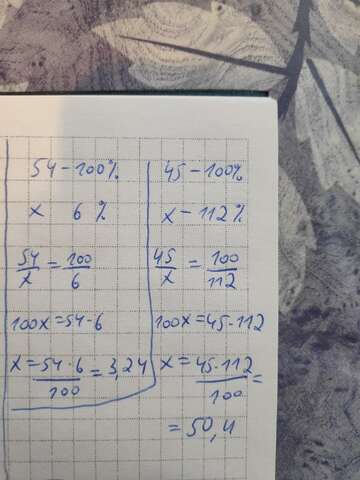 54 - 100%
x 6%
54/x = 100/6
100x = 54 · 6
x = 54 · 6/100 = 3,24
45 - 100%
x - 112%
45/x = 100/112
100x = 45 · 112
x = 45 · 112/100 =
= 50,4